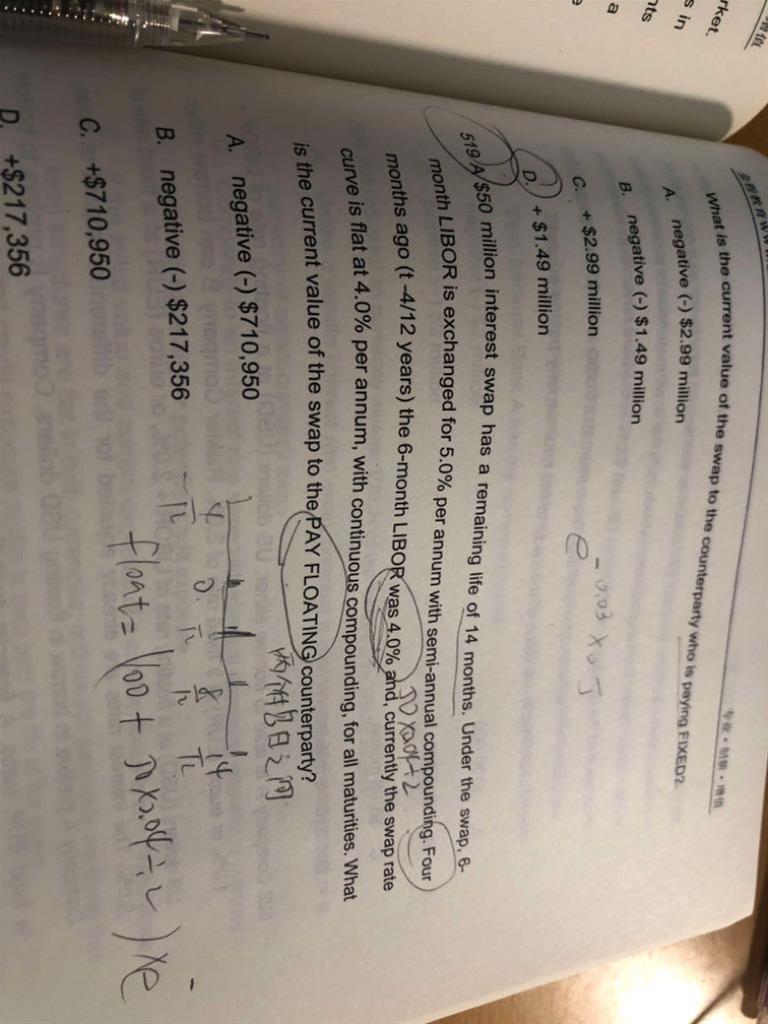 增值
rket.
s in
nts
a
专业 • 创新 • 增值
What is the current value of the swap to the counterparty who is paying FIXED?
A. negative (-) $2.99 million
B. negative (-) $1.49 million
C. + $2.99 million
D. + $1.49 million
e
519. A $50 million interest swap has a remaining life of 14 months. Under the swap, 6-
month LIBOR is exchanged for 5.0% per annum with semi-annual compounding. Four
months ago (t -4/12 years) the 6-month LIBOR was 4.0% and, currently the swap rate
curve is flat at 4.0% per annum, with continuous compounding, for all maturities. What
is the current value of the swap to the PAY FLOATING counterparty?
A. negative (-) $710,950
B. negative (-) $217,356
C. +$710,950
D. +$217,356
-4/12 0 2/12 8/12 14/12
float=